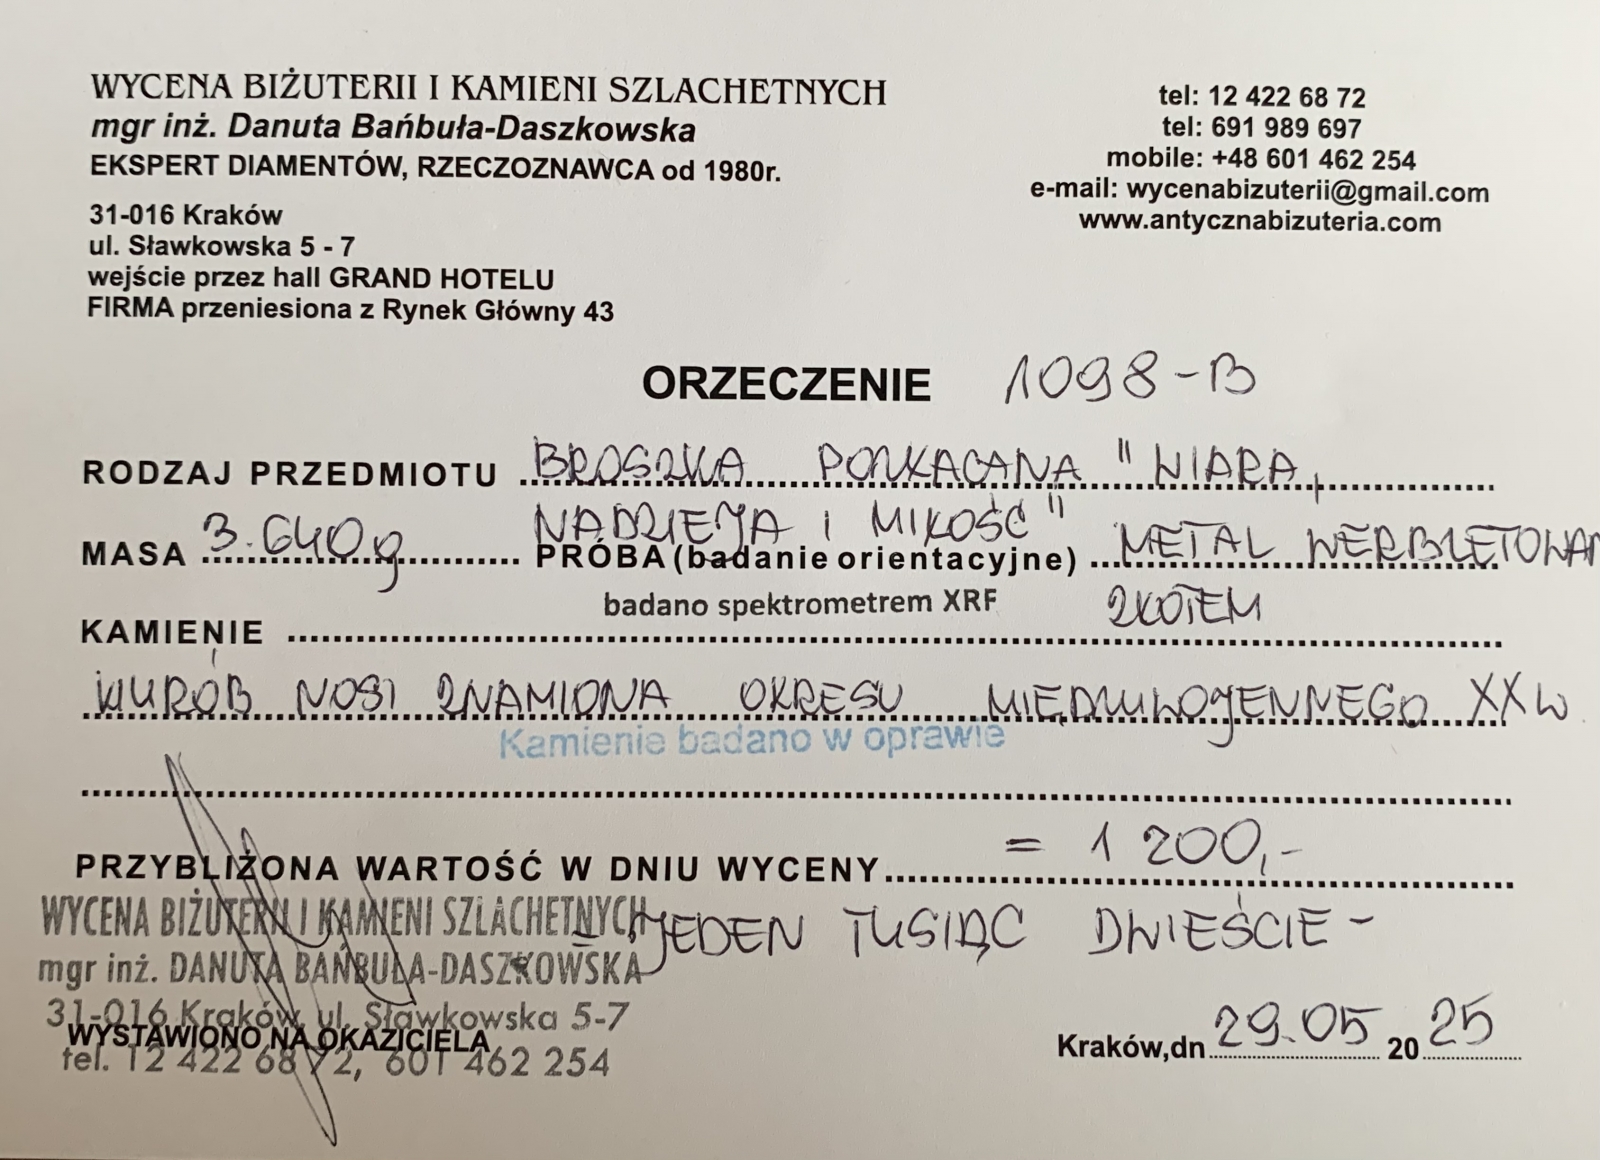 WYCENA BIŻUTERII I KAMIENI SZLACHETNYCH
mgr inż. Danuta Bańbuła-Daszkowska
EKSPERT DIAMENTÓW, RZECZOZNAWCA od 1980r.
31-016 Kraków
ul. Sławkowska 5 - 7
wejście przez hall GRAND HOTELU
FIRMA przeniesiona z Rynek Główny 43
tel: 12 422 68 72
tel: 691 989 697
mobile: +48 601 462 254
e-mail: wycenabizuterii@gmail.com
www.antycznabizuteria.com
ORZECZENIE 1098-B
RODZAJ PRZEDMIOTU BROSZKA POZŁACANA "WIARA,
NADZIEJA I MIŁOŚĆ"
MASA 3.640g PRÓBA (badanie orientacyjne) METAL
badano spektrometrem XRF ZŁOTEM
KAMIENIE
WYRÓB NOSI ZNAMIONA OKRESU MIĘDZYWOJENNEGO XXW
Kamienie badano w oprawie
PRZYBLIŻONA WARTOŚĆ W DNIU WYCENY = 1 200,-
JEDEN TYSIĄC DWIEŚCIE -
WYCENA BIŻUTERII I KAMIENI SZLACHETNYCH
mgr inż. DANUTA BAŃBUŁA-DASZKOWSKA
31-016 Kraków, ul. Sławkowska 5-7
WYSTAWIONO NA OKAZICIELA
tel. 12 422 68 72, 601 462 254
Kraków,dn 29.05 2025